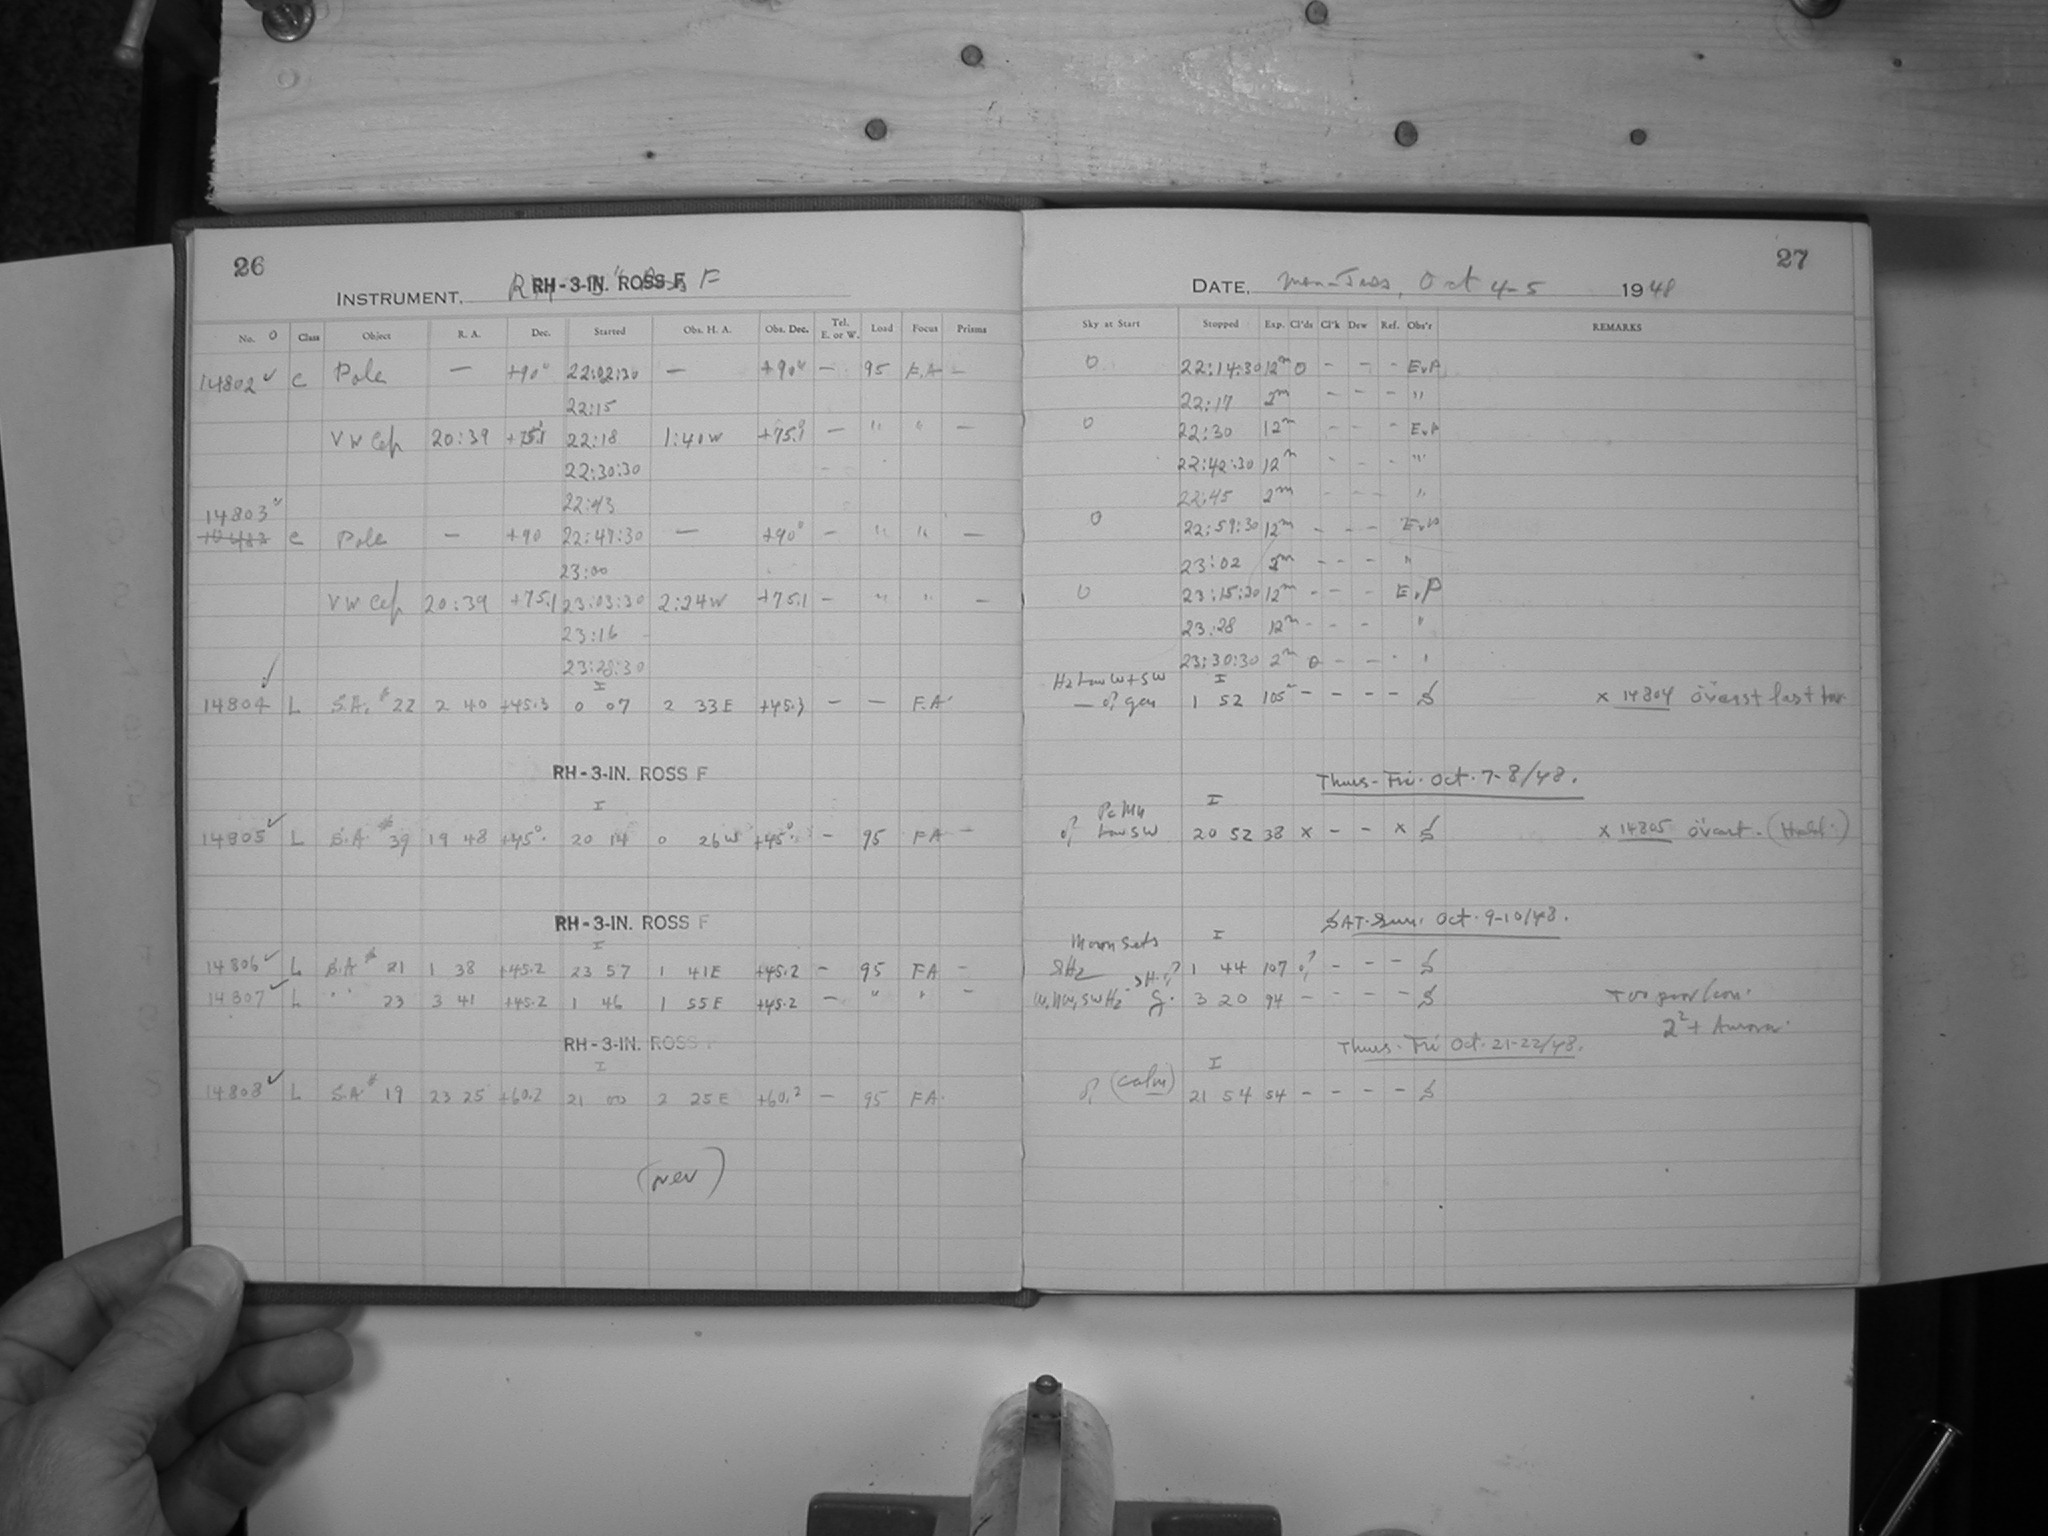 26
INSTRUMENT, RH-3-IN. ROSS F
No. Class Object R. A. Dec. Started Obs. H. A. Obs. Dec. Tel. E. or W. Load Focus Prisms
14802 ✓ C Pole — +90° 22:02:30 — +90° — 95 F.A —
22:15
VW Cep 20:39 +75.1 22:18 1:40W +75.1 — " " —
22:30:30
22:43
14803 ✓
C Pole — +90 22:47:30 — +90° — " " —
23:00
VW Cep 20:39 +75.1 23:03:30 2:24W +75.1 — " " —
23:16
23:28:30
I
14804 ✓ L S.A. # 22 2 40 +45.3 0 07 2 33E +45.3 — — F.A
RH-3-IN. ROSS F
I
14805 ✓ L S.A # 39 19 48 +45° 20 14 0 26W +45° — 95 FA —
RH-3-IN. ROSS F
I
14806 ✓ L S.A # 21 1 38 +45.2 23 57 1 41E +45.2 — 95 FA —
14807 ✓ L " " 23 3 41 +45.2 1 46 1 55E +45.2 — " " —
RH-3-IN. ROSS F
I
14808 ✓ L S.A # 19 23 25 +60.2 21 00 2 25E +60.2 — 95 FA
(over)
27
DATE, Mon-Tues, Oct 4-5 1948
Sky at Start Stopped Exp. Cl'ds Cl'k Dew Ref. Obs'r REMARKS
0 22:14:30 12m 0 - - - EvP
22:17 2m - - - "
0 22:30 12m - - - EvP
22:42:30 12m - - - "
22:45 2m - - - "
0 22:59:30 12m - - - EvP
23:02 2m - - - "
0 23:15:30 12m - - - EvP
23:28 12m - - - "
23:30:30 2m 0 - - - "
Hz Low W + SW I
1 52 105 - - - - S x 14804 överst last
Thurs-Fri. Oct. 7-8/48.
I
Low SW 20 52 38 x - - x S x 14805 överst.
SAT-Sun. Oct. 9-10/48.
Moon Sets I
1 44 107 - - - S
W, NW, SW Hz 3 20 94 - - - - S Too poor
2² + Aurora
Thurs-Fri Oct. 21-22/48.
I
(calm) 21 54 54 - - - - S